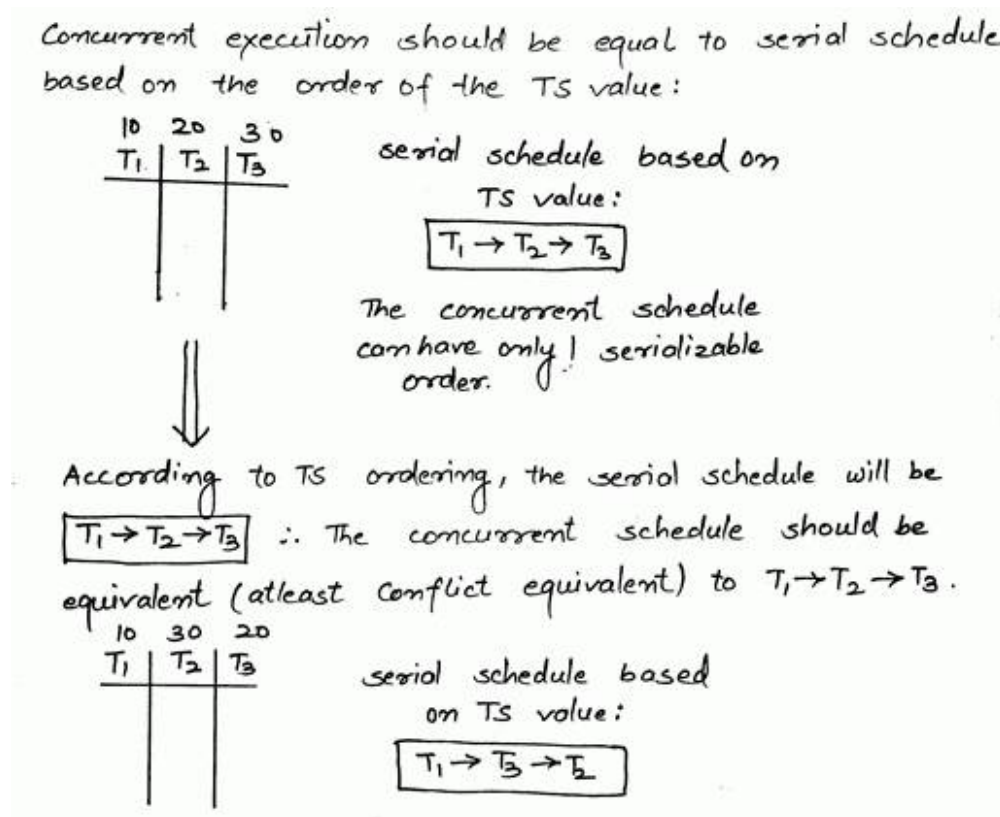 Concurrent execution should be equal to serial schedule
based on the order of the TS value:
10 20 30
T1 T2 T3
serial schedule based on
TS value:
T1 → T2 → T3
The concurrent schedule
can have only 1 serializable
order.
According to TS ordering, the serial schedule will be
T1 → T2 → T3 ∴ The concurrent schedule should be
equivalent (atleast Conflict equivalent) to T1 → T2 → T3.
10 30 20
T1 T2 T3
serial schedule based
on TS value:
T1 → T3 → T2